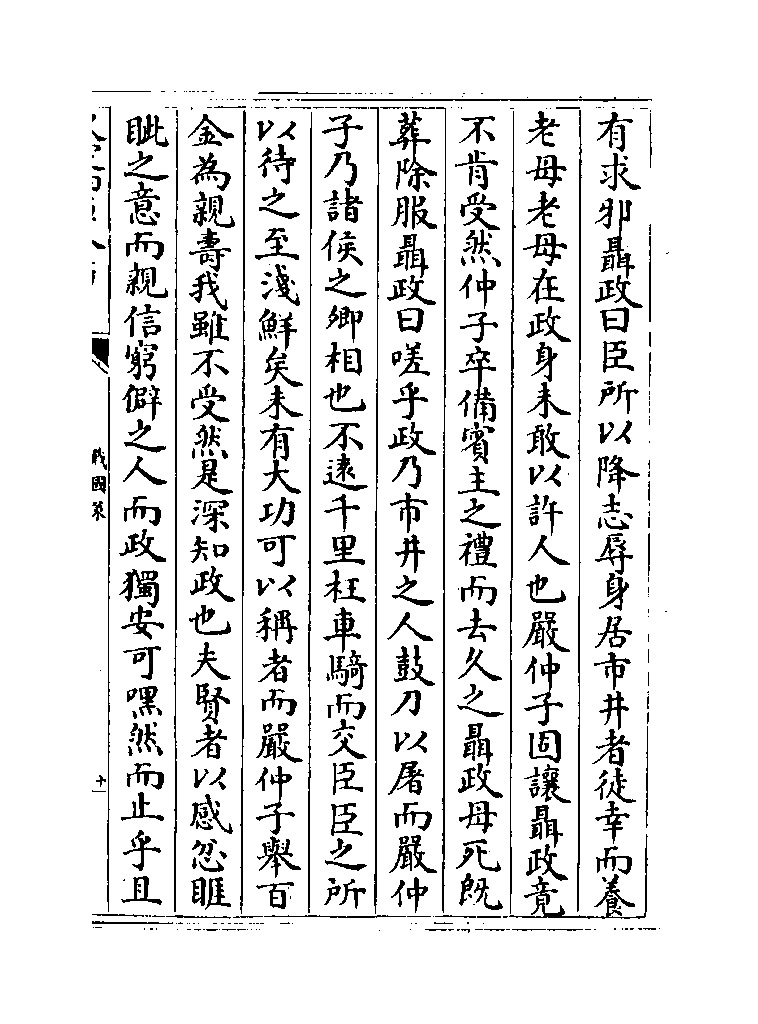 有求邪聶政曰臣所以降志辱身居市井者徒幸而養
老母老母在政身未敢以許人也嚴仲子固讓聶政竟
不肯受然仲子卒備賓主之禮而去久之聶政母死既
葬除服聶政曰嗟乎政乃市井之人鼓刀以屠而嚴仲
子乃諸侯之卿相也不遠千里枉車騎而交臣臣之所
以待之至淺鮮矣未有大功可以稱者而嚴仲子舉百
金為親壽我雖不受然是深知政也夫賢者以感忿睚
眦之意而親信窮僻之人而政獨安可嘿然而止乎且
戰國策
十